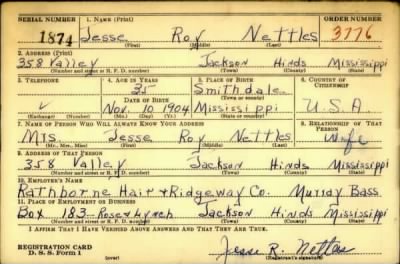 SERIAL NUMBER 1. NAME (Print) ORDER NUMBER
1874 Jesse Roy Nettles 3776
(First) (Middle) (Last)
2. ADDRESS (Print)
358 Valley Jackson Hinds Mississippi
(Number and street or R. F. D. number) (Town) (County) (State)
3. TELEPHONE 4. AGE IN YEARS 5. PLACE OF BIRTH 6. COUNTRY OF CITIZENSHIP
35 Smithdale
DATE OF BIRTH (Town or county)
Nov. 10 1904 Mississippi U.S.A.
(Exchange) (Number) (Mo.) (Day) (Yr.) (State or country)
7. NAME OF PERSON WHO WILL ALWAYS KNOW YOUR ADDRESS 8. RELATIONSHIP OF THAT PERSON
Mrs. Jesse Roy Nettles Wife
(Mr., Mrs., Miss) (First) (Middle) (Last)
9. ADDRESS OF THAT PERSON
358 Valley Jackson Hinds Mississippi
(Number and street or R. F. D. number) (Town) (County) (State)
10. EMPLOYER'S NAME
Rathborne Hair & Ridgeway Co. Murray Bass
11. PLACE OF EMPLOYMENT OR BUSINESS
Box 183 - Rose & Lynch Jackson Hinds Mississippi
(Number and street or R. F. D. number) (Town) (County) (State)
I AFFIRM THAT I HAVE VERIFIED ABOVE ANSWERS AND THAT THEY ARE TRUE.
REGISTRATION CARD Jesse R. Nettles
D. S. S. Form 1 (over) (Registrant's signature)